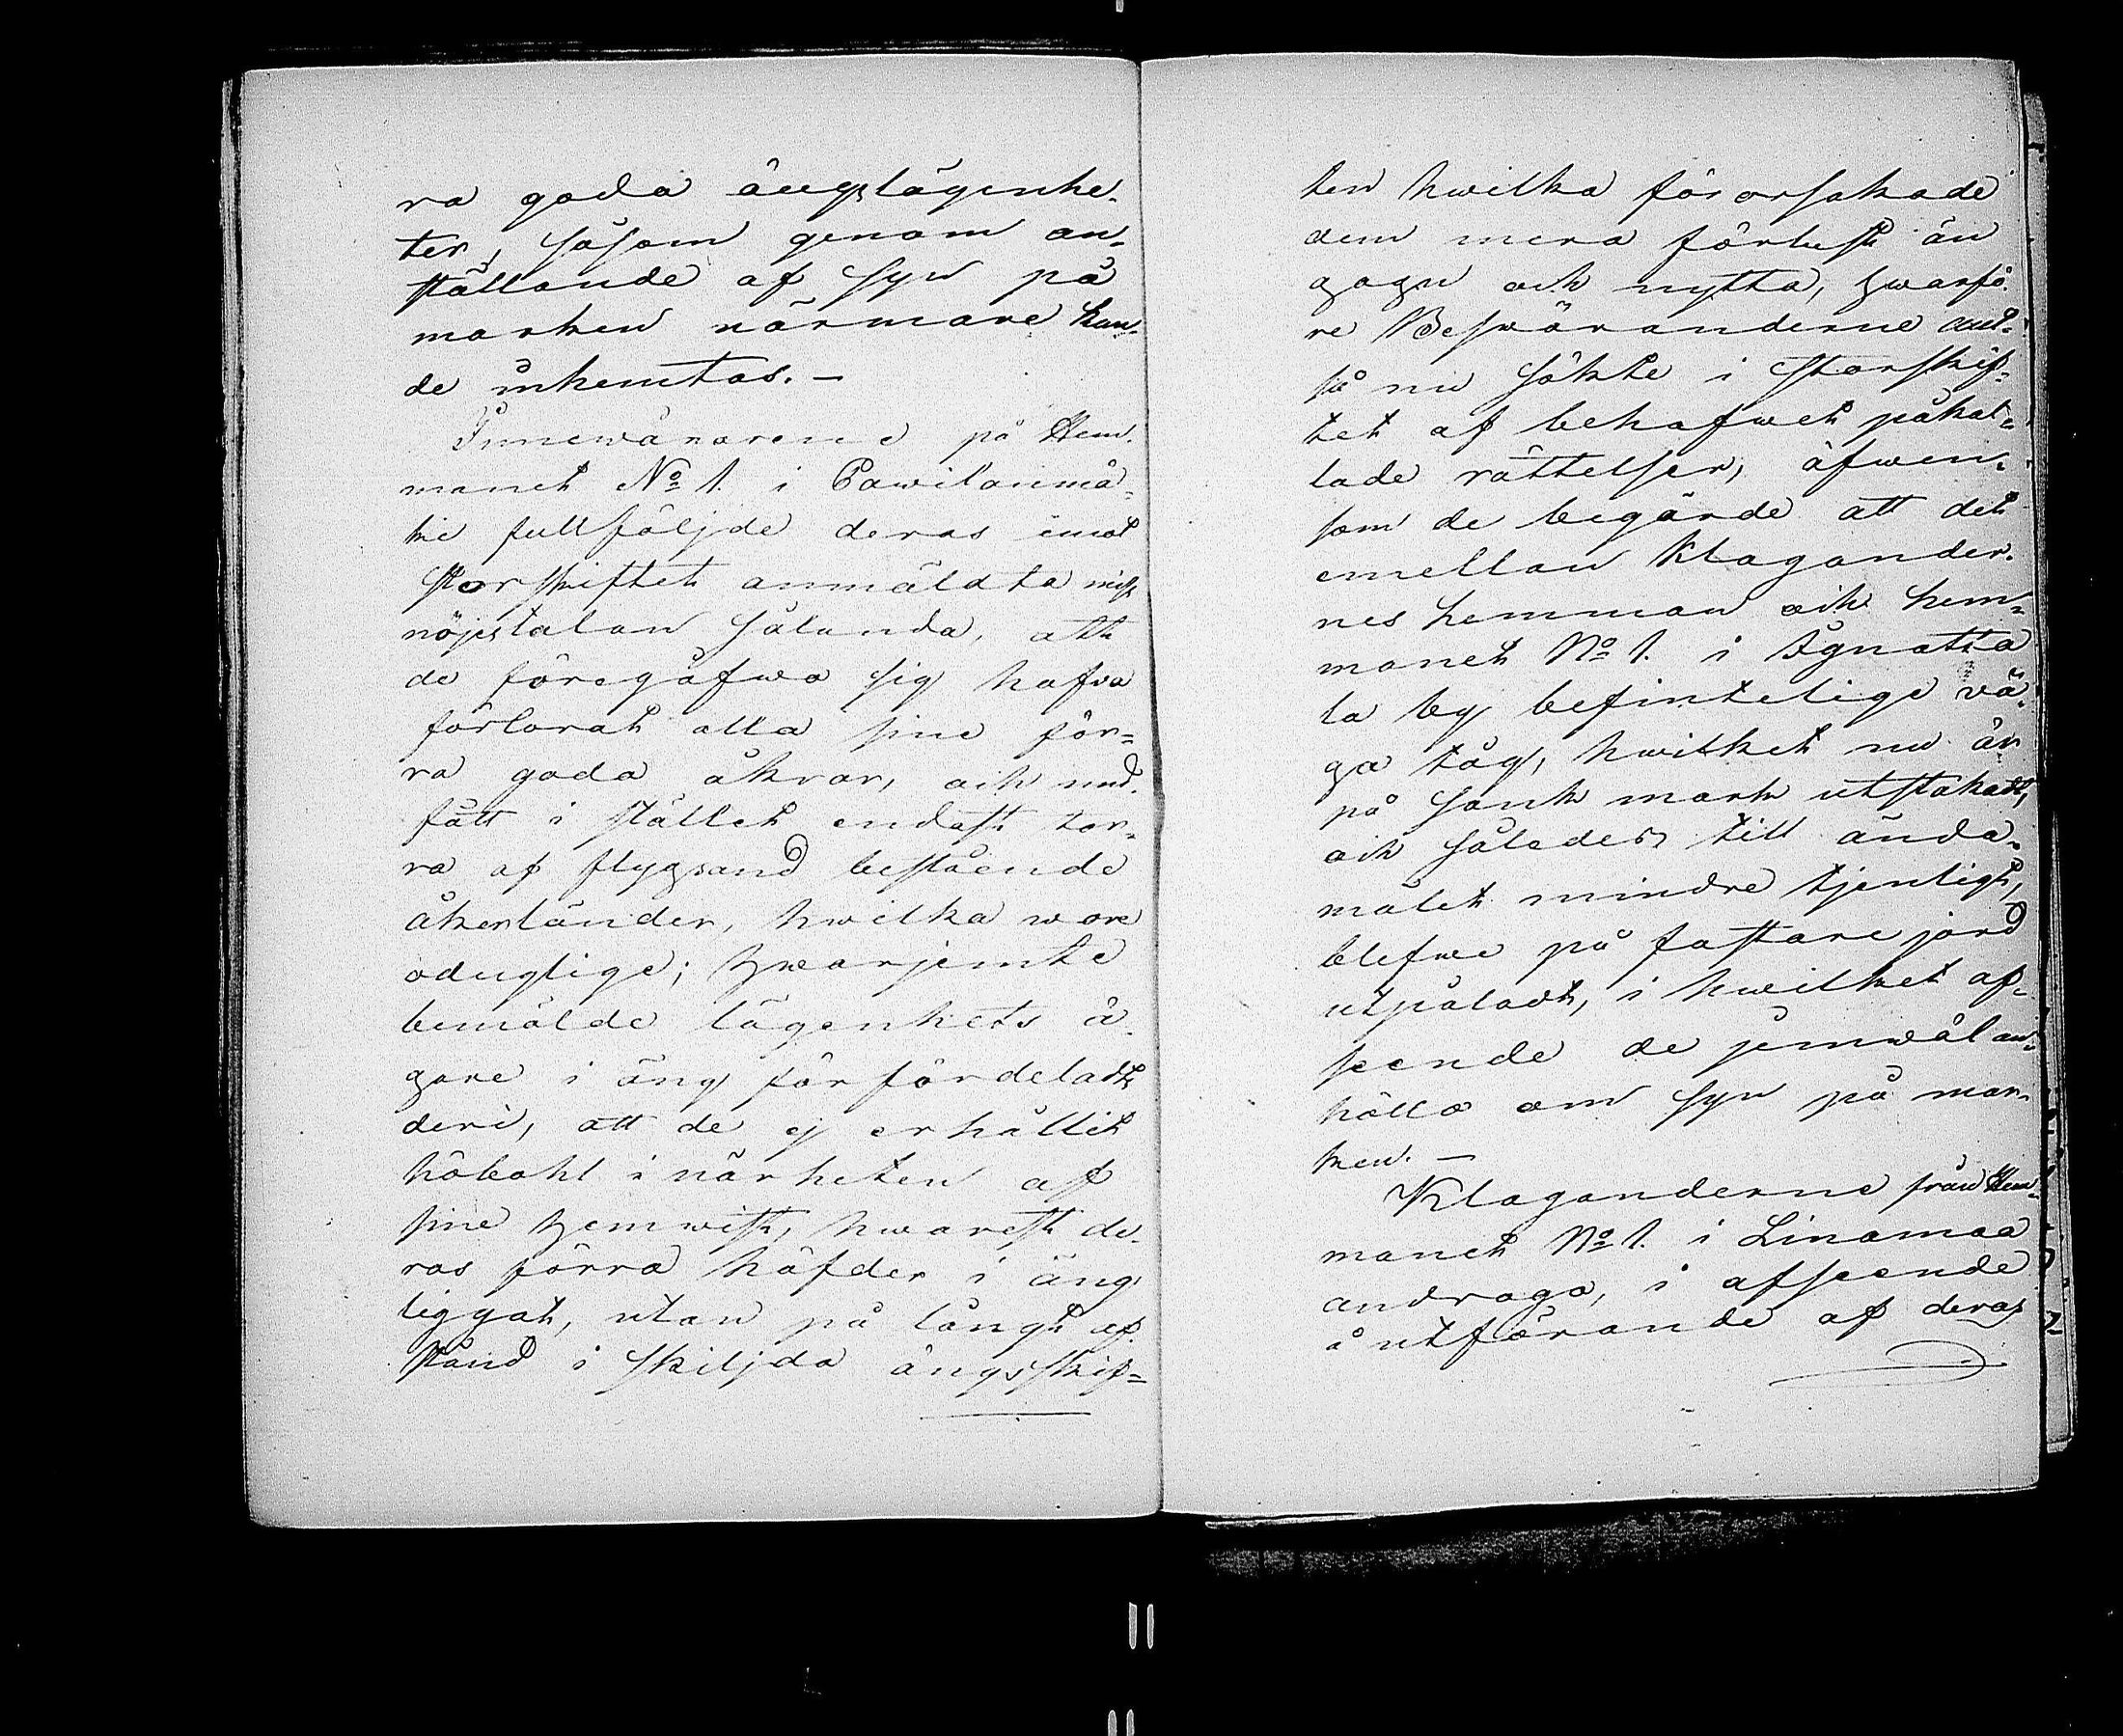 ra goda ängslägenhe-
ter, såsom genom an-
ställande af syn på
marken närmare kun-
de inhemtas. —
Innewånarene på Hem-
manet No 1. i Pawilanmä-
ki fullföljde deras emot
Storskiftet anmäldta miss-
nöjestalan sålunda, att
de föregåfwo sig hafva
förlorat alla sine för-
ra goda åkrar, och und-
fått i stället endast tor-
ra af flygsand bestående
åkerländer, hwilka wore
oduglige; hwarjemte
bemälde lägenhets å-
gare i äng förfördeladts
deri, att de ej erhållit
höbohl i närheten af
sine hemwist, hwarest de-
ras förra häfder i äng
liggat, utan på långt af-
stånd i skiljda ängsskif-
ten hwilka förorsakade
dem mera förlust än
gagn och nytta, hwarfö-
re Beswäranderne allt-
så nu sökte i storskif-
tet af behofwet påkal-
lade rättelser, äfwen-
som de begärde att det
emellan Klagander-
nes hemman och hem-
manet No 1. i Ignatta
la by befintelige vä-
ga tåg, hwilket nu är
på sank mark utstakadt,
och således till ända-
målet mindre tjenligt,
blefwe på fastare jord
utpåladt, i hwilket af-
seende de jemwäl an-
höllo om syn på mar-
ken. —
Klaganderne från Hem-
manet No 1. i Linamaa
androgo, i afseende
å utförande af deras